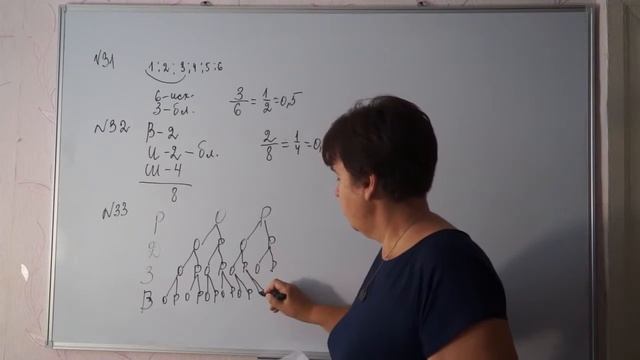 N31 1; 2; 3; 4; 5; 6
6-исх.
3-бл.
3/6 = 1/2 = 0,5
N32 В-2
И-2-бл.
Ш-4
8
2/8 = 1/4 = 0,
N33 Р О Р
2 О Р О Р
З О Р О Р О Р О Р
В О Р О Р О Р О Р О Р